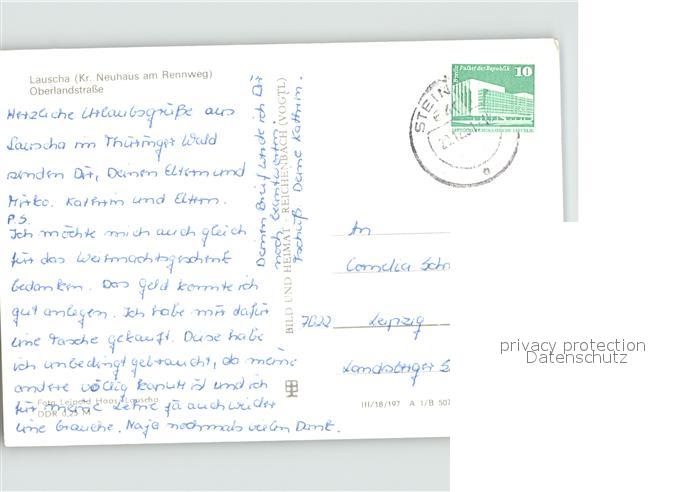 Lauscha (Kr. Neuhaus am Rennweg)
Oberlandstraße
Herzliche Urlaubsgrüße aus
Lauscha im Thüringer Wald
senden Dir, Deinen Eltern und
Mirko. Kathrin und Eltern.
P.S.
Ich möchte mich auch gleich
für das Weihnachtsgeschenk
bedanken. Das Geld konnte ich
gut anlegen. Ich habe mir dafür
eine Tasche gekauft. Diese habe
ich unbedingt gebraucht, da meine
andere völlig kaputt ist und ich
für meine Lehre ja auch wieder
eine brauche. Naja nochmals vielen Dank.
Deinen Brief werde ich Dir
noch beantworten.
Tschüß Deine Kathrin.
Foto Leipold Haas, Lauscha
DDR 0,25 M
BILD UND HEIMAT · REICHENBACH (VOGTL)
STEIN
Berlin Palast der Republik
10
An
Cornelia Sch
7022 Leipzig
Landsberger S
III/18/197 A 1/B 507
privacy protection
Datenschutz